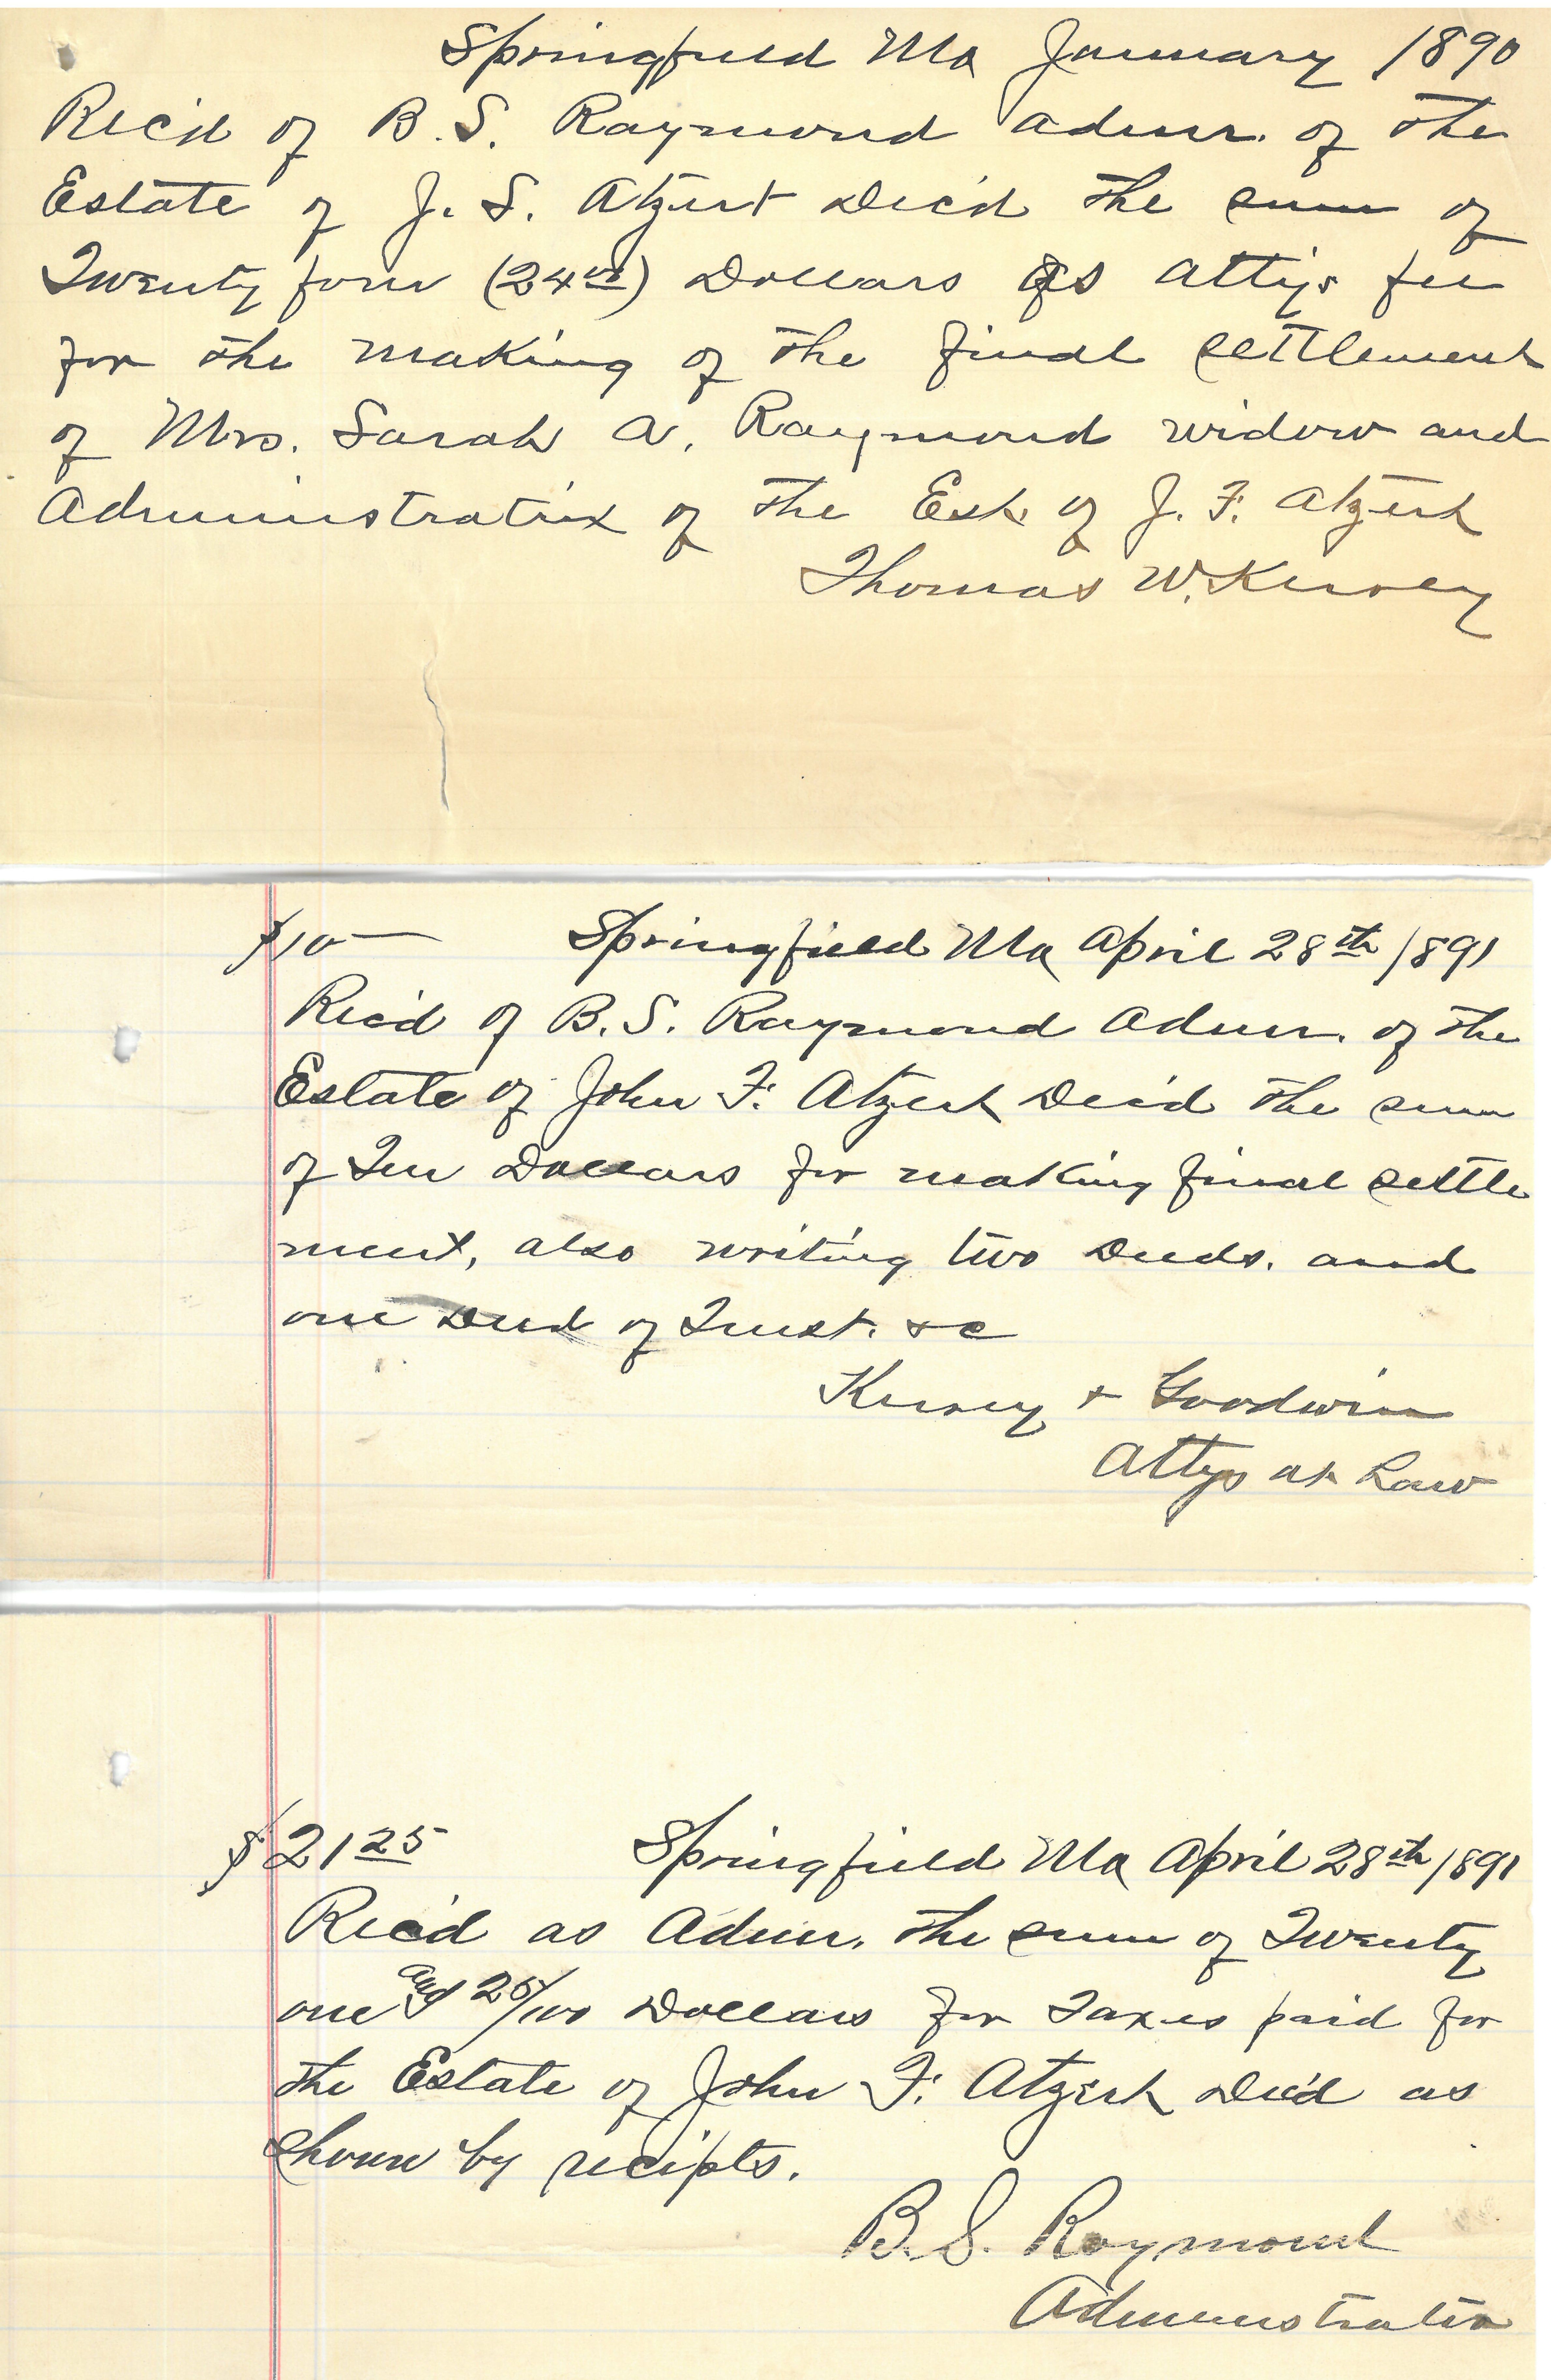 Springfield Mo January 1890
Rec'd of B. S. Raymond Admr. of the
Estate of J. S. Atzert Dec'd the sum of
Twenty four (24 00) Dollars as Attys fee
for the making of the final settlement
of Mrs. Sarah A. Raymond widow and
Administratrix of the Est. of J. F. Atzert
Thomas W. Kersey
$10— Springfield Mo April 28th 1891
Rec'd of B. S. Raymond Admr. of the
Estate of John F. Atzert Dec'd the sum
of Ten Dollars for making final settle
ment, also writing two Deeds. and
one Deed of Trust. &c
Kersey + Goodwin
Attys at Law
$21 25 Springfield Mo April 28th 1891
Rec'd as Admr. the sum of Twenty
one and 25/100 Dollars for Taxes paid for
the Estate of John F. Atzert Dec'd as
shown by recipts.
B. S. Raymond
Administrator